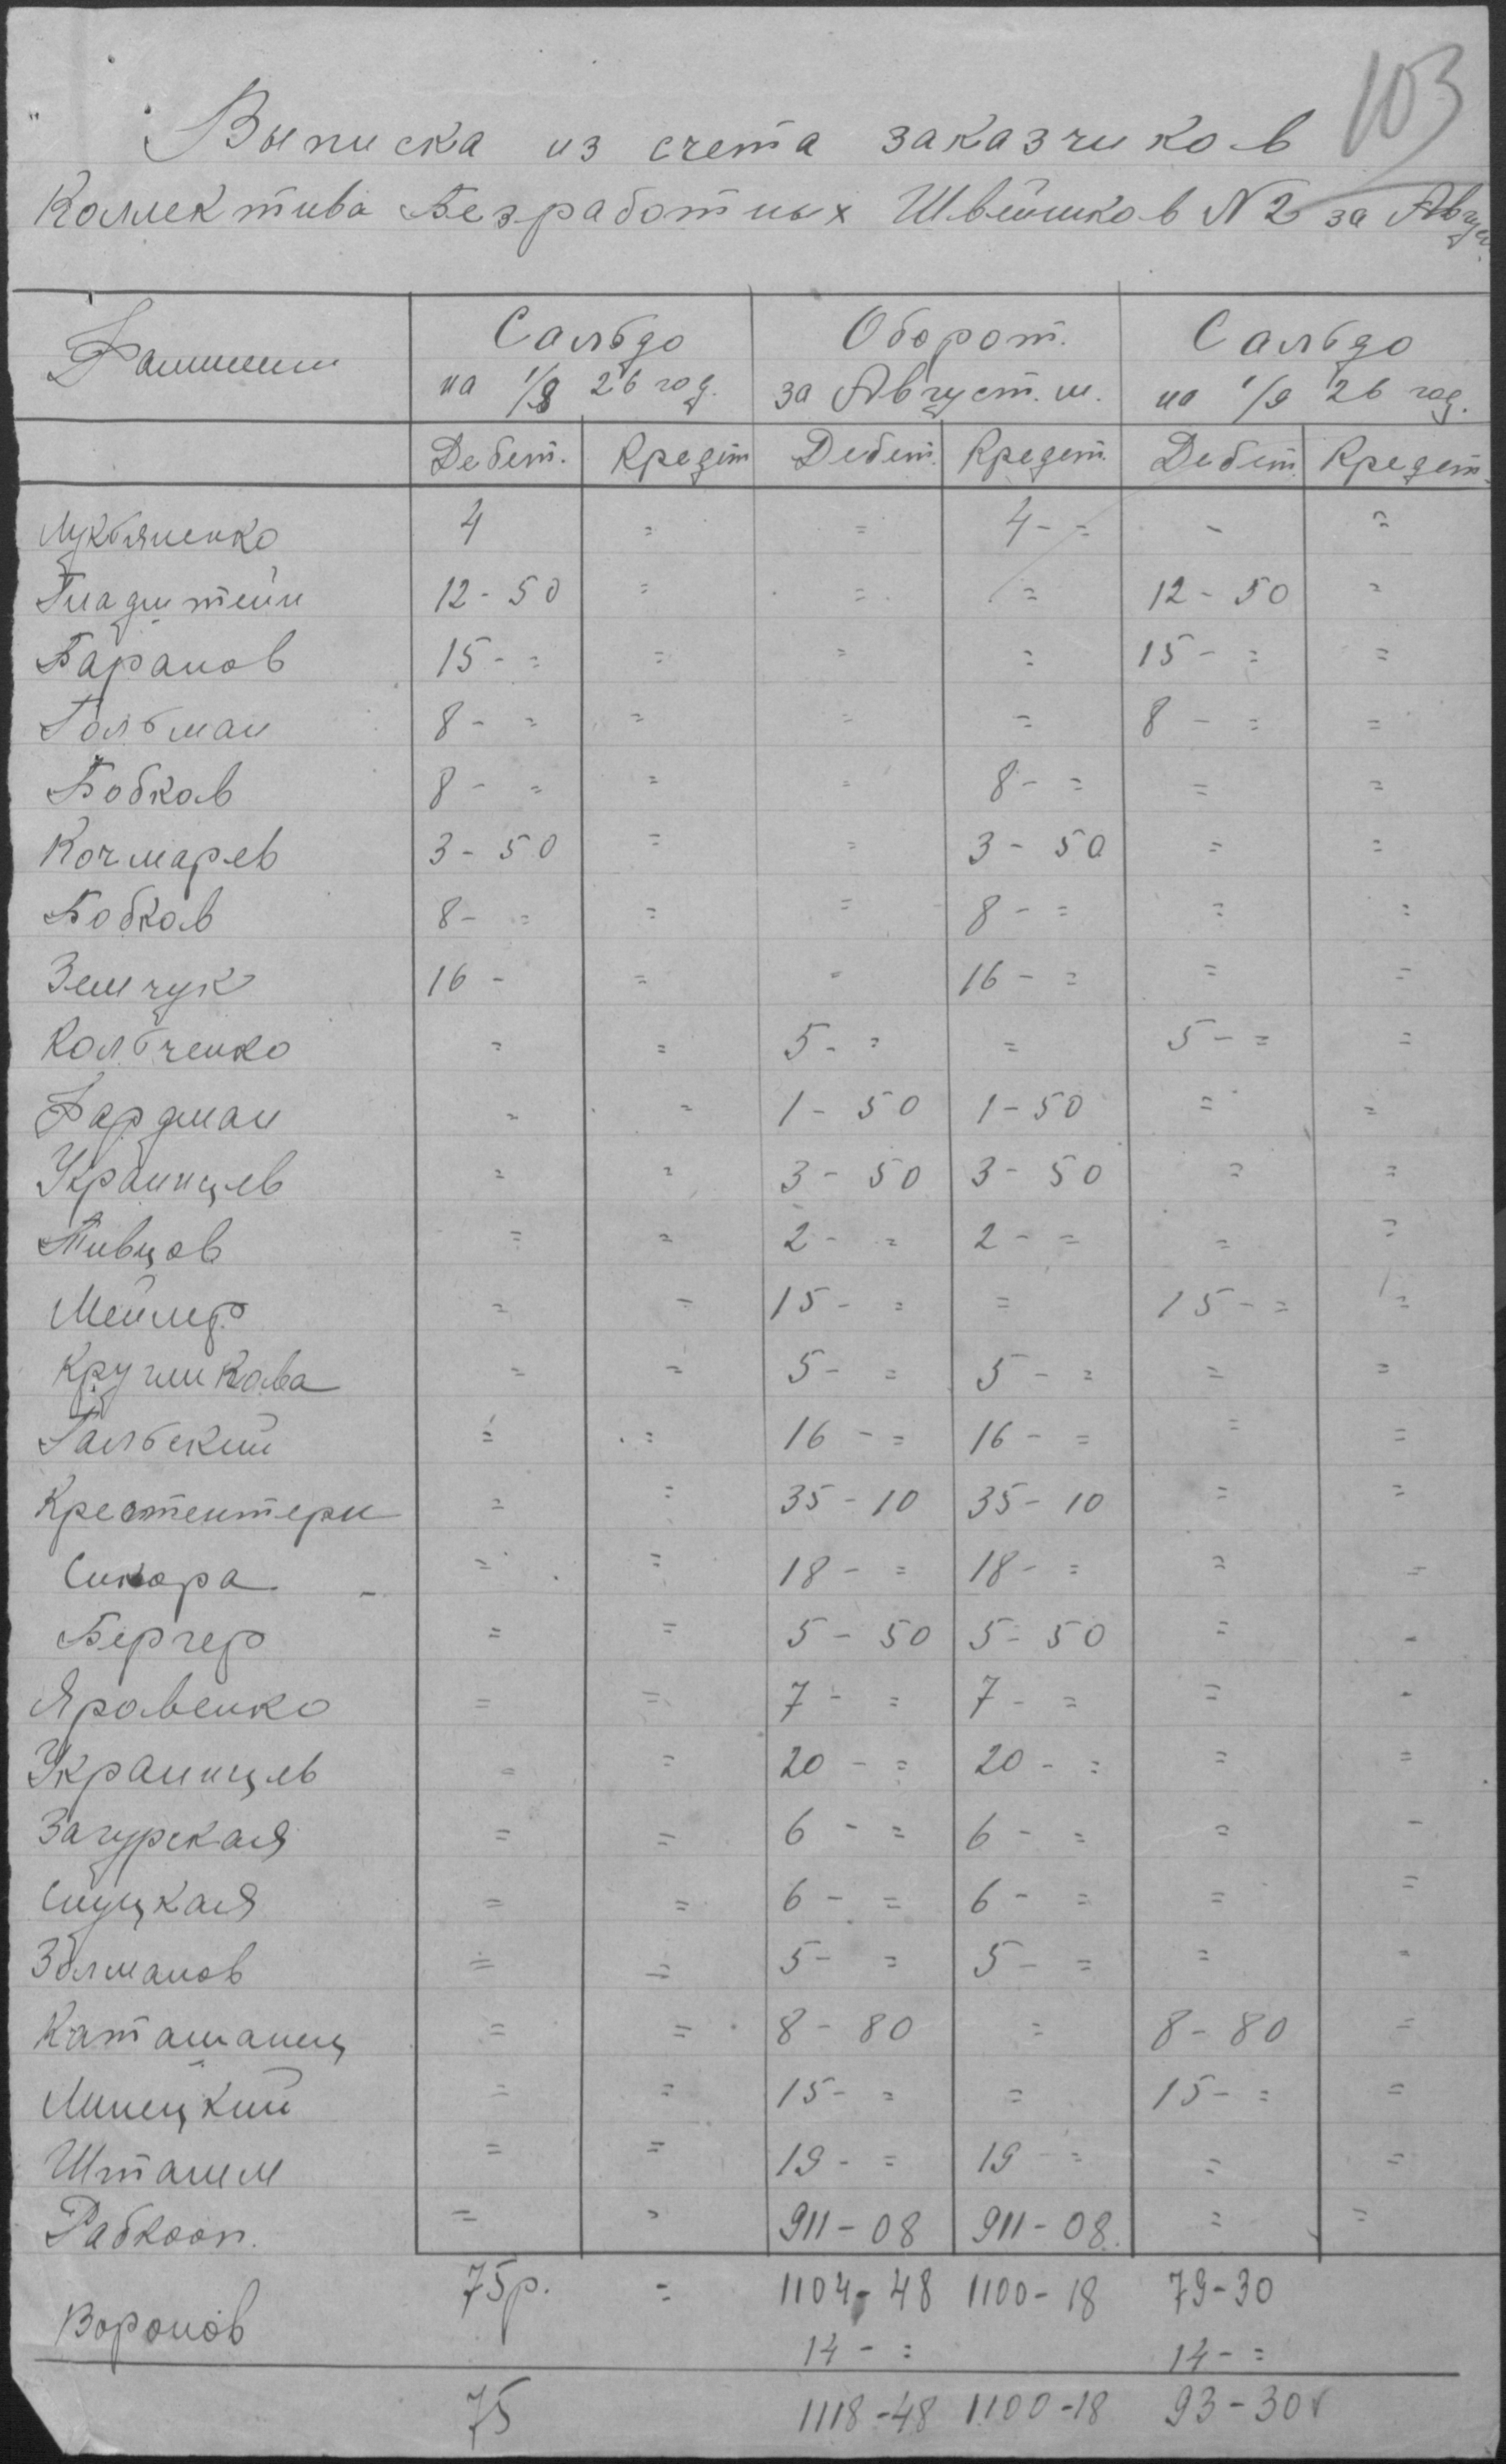 103
Выписка из счета заказчиков
Коллектива Безработных Швейников N 2 за Август
Фамилии Сальдо Оборот. Сальдо
на 1/8 26 год. за Август. м. на 1/9 26 год.
Дебет. Кредит Дебет. Кредит. Дебет. Кредит.
Лукбяненко 4 = = 4 - = - =
Гладштейн 12 - 50 = = = 12 - 50 =
Баранов 15 - = = = = 15 - = =
Гольман 8 - = = = = 8 - = =
Бобков 8 - = = = 8 - = = =
Кочмарев 3 - 50 = = 3 - 50 = =
Бобков 8 - = = = 8 - = = =
Земчук 16 - = = 16 - = = =
Кольченко = = 5 - = = 5 - = =
Фардман = = 1 - 50 1 - 50 = =
Украинцев = = 3 - 50 3 - 50 = =
Пивцов = = 2 - = 2 - = = =
Мейлер = = 15 - = = 15 - = =
Кругликова = = 5 - = 5 - = = =
Гальский = = 16 - = 16 - = = =
= = 35 - 10 35 - 10 = =
Сикора - = = 18 - = 18 - = = =
Бергер = = 5 - 50 5 - 50 = -
Яровенко = = 7 - = 7 - = = -
Украинцев = = 20 - = 20 - = = =
Загурская = = 6 - = 6 - = = -
Слуцкая = = 6 - = 6 - = = =
Золманов = = 5 - = 5 - = = =
Каташанец = = 8 - 80 = 8 - 80 =
Линецкий = = 15 - = = 15 - = =
Шталем = = 19 - = 19 - = = =
Рабкооп. = = 911 - 08 911 - 08. = =
75р. = 1104 - 48 1100 - 18 79 - 30
Воронов 14 - = 14 - =
75 1118 - 48 1100 - 18 93 - 30